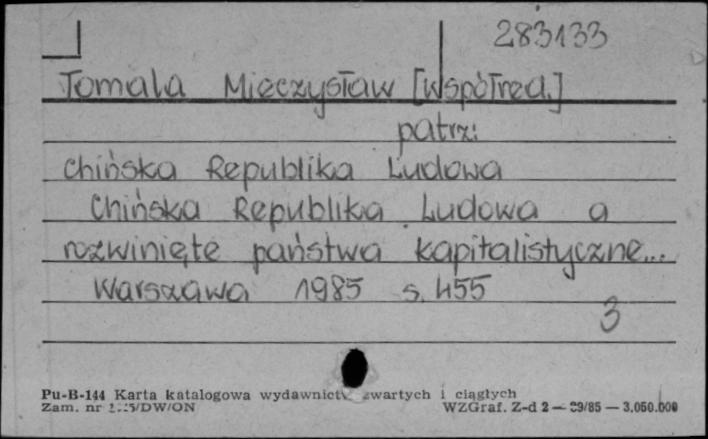 283133
Tomala Mieczysław [współred.]
patrz:
Chińska Republika Ludowa
Chińska Republika Ludowa a
rozwinięte państwa kapitalistyczne...
Warszawa 1985 s. 455
3
Pu-B-144 Karta katalogowa wydawnictw zwartych i ciągłych
Zam. nr /DW/ON WZGraf. Z-d 2 — 29/85 — 3.050.000